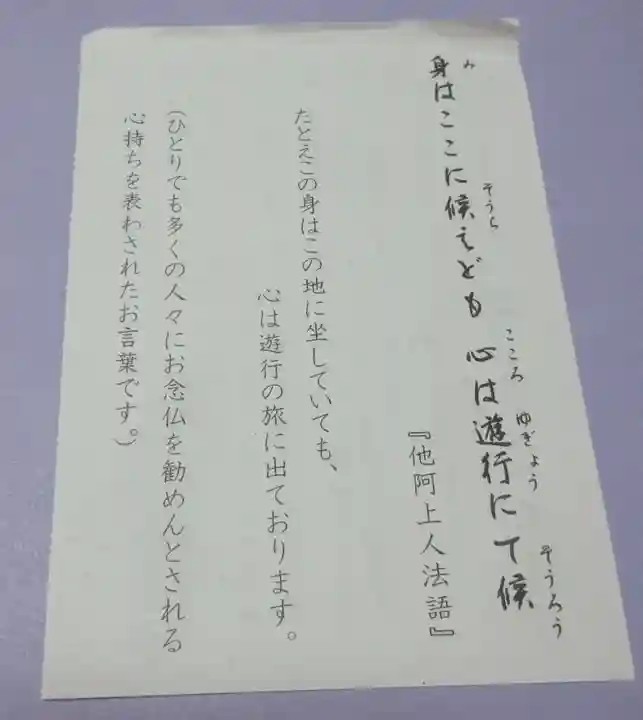 身はここに候えども 心は遊行にて候
み
そうら
こころ
ゆぎょう
そうろう
『他阿上人法語』
たとえこの身はこの地に坐していても、
心は遊行の旅に出ております。
（ひとりでも多くの人々にお念仏を勧めんとされる
心持ちを表わされたお言葉です。）